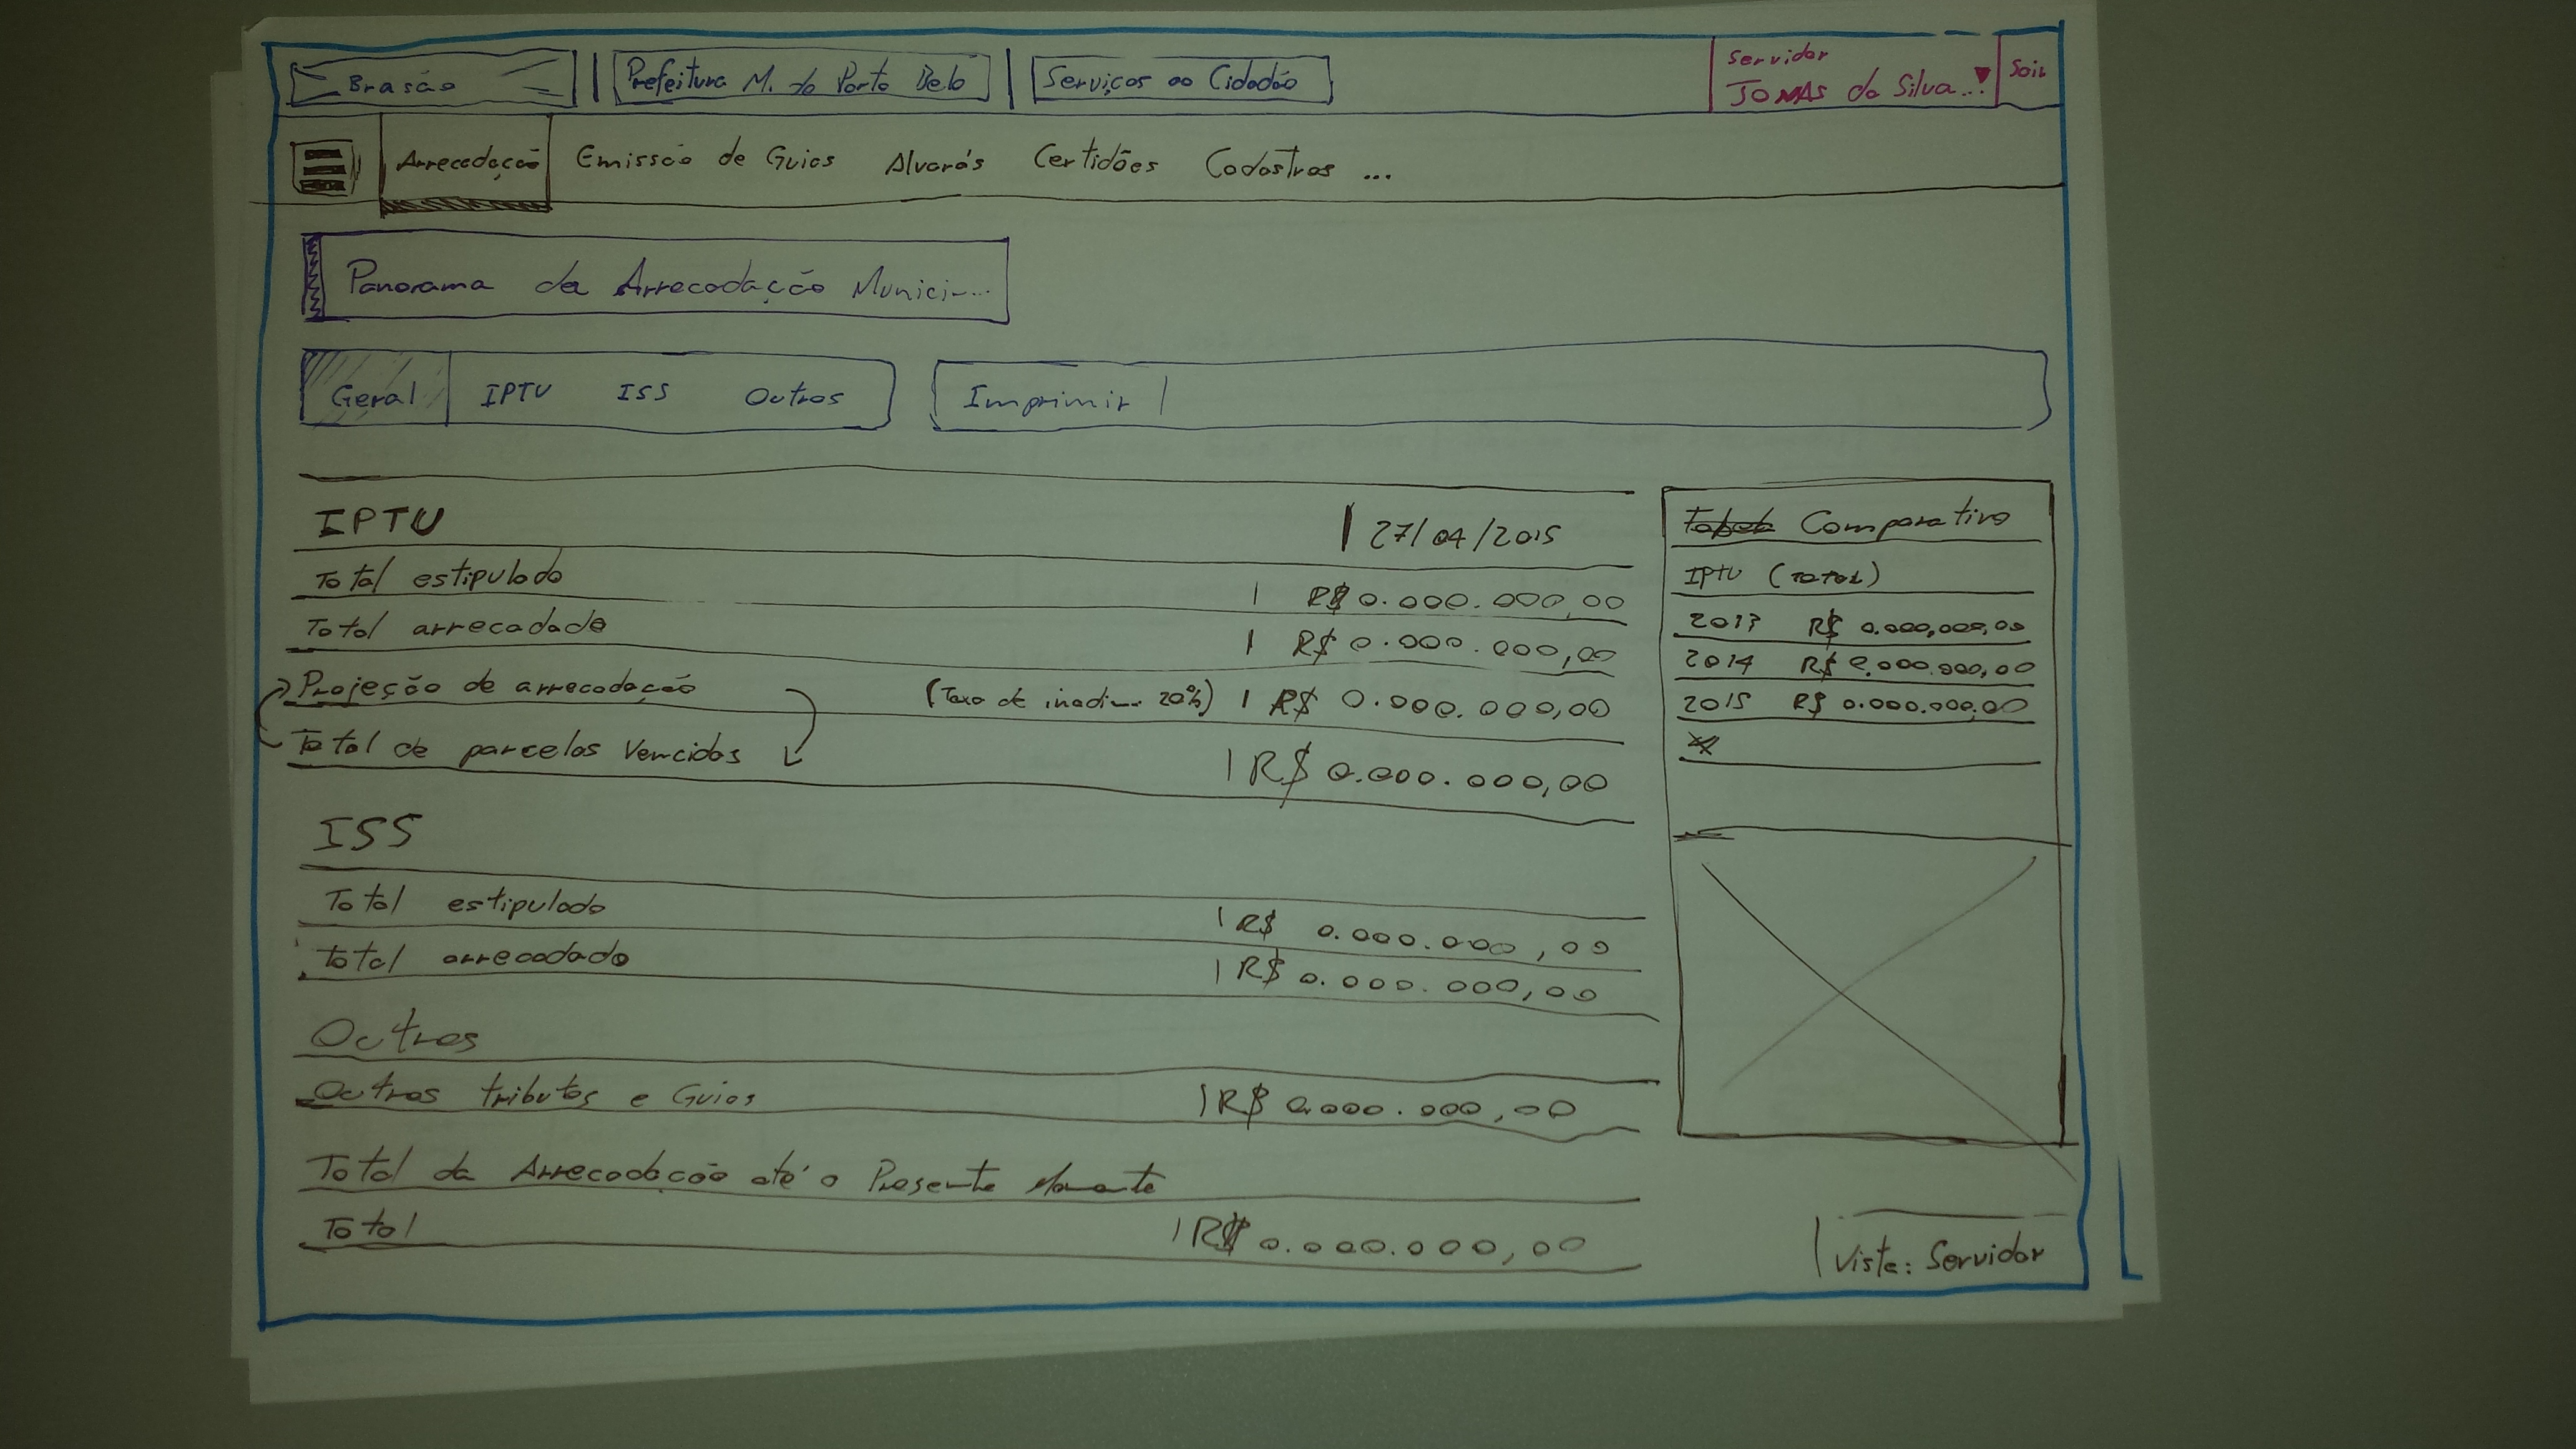 Brasão Prefeitura M. de Porto Belo Serviços ao Cidadão Servidor
JOMAS da Silva... Sair
Arrecadação Emissão de Guias Alvarás Certidões Cadastros ...
Panorama da Arrecadação Munici...
Geral IPTU ISS Outros Imprimir
IPTU 27/04/2015
Total estipulado R$ 0.000.000,00
Total arrecadado R$ 0.000.000,00
Projeção de arrecadação (Taxa de inadi... 20%) R$ 0.000.000,00
Total de parcelas Vencidas R$ 0.000.000,00
ISS
Total estipulado R$ 0.000.000,00
total arrecadado R$ 0.000.000,00
Outros
Outros tributos e Guias R$ 0.000.000,00
Total da Arrecadação até o Presente Momento
Total R$ 0.000.000,00
Comparativo
IPTU (TOTAL)
2013 R$ 0.000,000,00
2014 R$ 0.000.000,00
2015 R$ 0.000.000,00
Vista: Servidor